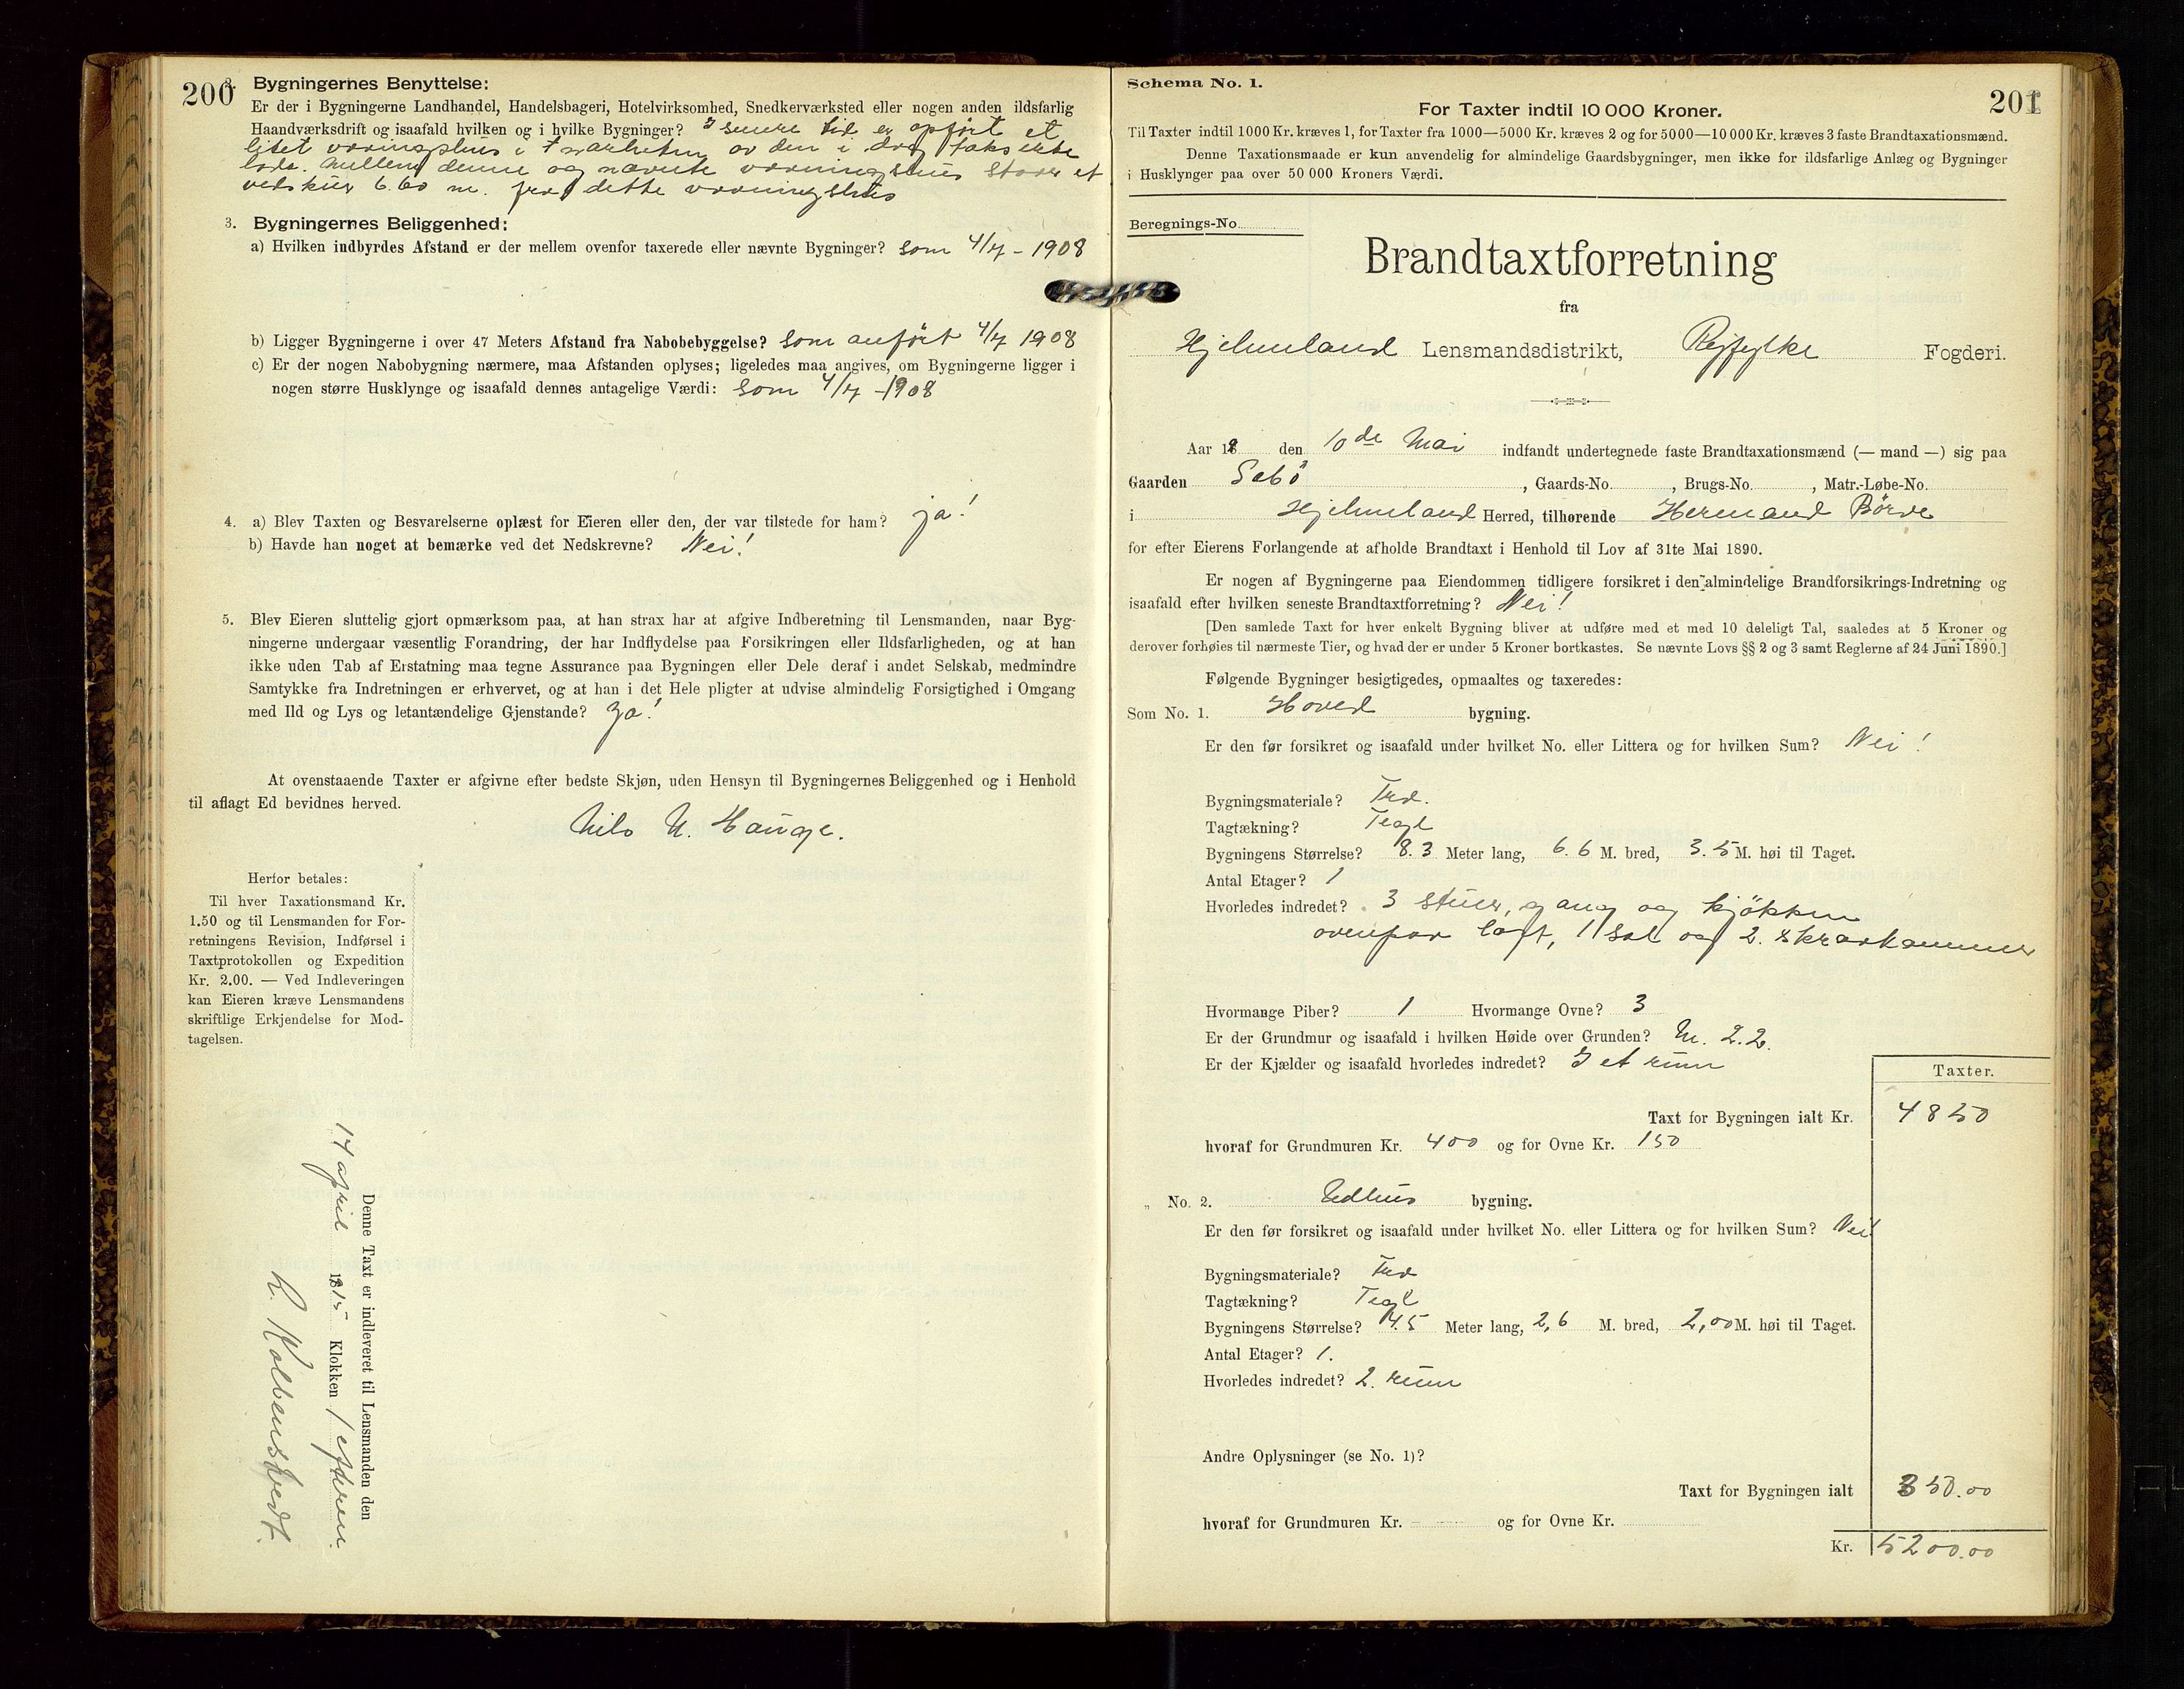 200
Bygningernes Benyttelse:
Er der i Bygningerne Landhandel, Handelsbageri, Hotelvirksomhed, Snedkerværksted eller nogen anden ildsfarlig
Haandværksdrift og isaafald hvilken og i hvilke Bygninger? I senere tid er opført et
litet vaaningshus i nærheten av den i dag takserte
lade. Mellem denne og nævnte vaaningshus staar et
vedskur 6.60 m. fra dette vaaningshus
3. Bygningernes Beliggenhed:
a) Hvilken indbyrdes Afstand er der mellem ovenfor taxerede eller nævnte Bygninger? som 4/7 - 1908
b) Ligger Bygningerne i over 47 Meters Afstand fra Nabobebyggelse? som anført 4/7 1908
c) Er der nogen Nabobygning nærmere, maa Afstanden oplyses; ligeledes maa angives, om Bygningerne ligger i
nogen større Husklynge og isaafald dennes antagelige Værdi: som 4/7 - 1908
4. a) Blev Taxten og Besvarelserne oplæst for Eieren eller den, der var tilstede for ham? ja!
b) Havde han noget at bemærke ved det Nedskrevne? Nei!
5. Blev Eieren sluttelig gjort opmærksom paa, at han strax har at afgive Indberetning til Lensmanden, naar Byg-
ningerne undergaar væsentlig Forandring, der har Indflydelse paa Forsikringen eller Ildsfarligheden, og at han
ikke uden Tab af Erstatning maa tegne Assurance paa Bygningen eller Dele deraf i andet Selskab, medmindre
Samtykke fra Indretningen er erhvervet, og at han i det Hele pligter at udvise almindelig Forsigtighed i Omgang
med Ild og Lys og letantændelige Gjenstande? Ja!
At ovenstaaende Taxter er afgivne efter bedste Skjøn, uden Hensyn til Bygningernes Beliggenhed og i Henhold
til aflagt Ed bevidnes herved.
Nils N. Hauge.
Herfor betales:
Til hver Taxationsmand Kr.
1.50 og til Lensmanden for For-
retningens Revision, Indførsel i
Taxtprotokollen og Expedition
Kr. 2.00. — Ved Indleveringen
kan Eieren kræve Lensmandens
skriftlige Erkjendelse for Mod-
tagelsen.
Denne Taxt er indleveret til Lensmanden den
14 april 1815 Klokken 1 efterm.
Schema No. 1.
201
For Taxter indtil 10 000 Kroner.
Til Taxter indtil 1000 Kr. kræves 1, for Taxter fra 1000—5000 Kr. kræves 2 og for 5000—10 000 Kr. kræves 3 faste Brandtaxationsmænd.
Denne Taxationsmaade er kun anvendelig for almindelige Gaardsbygninger, men ikke for ildsfarlige Anlæg og Bygninger
i Husklynger paa over 50 000 Kroners Værdi.
Beregnings-No
Brandtaxtforretning
fra
Hjelmeland Lensmandsdistrikt, Ryfylke Fogderi.
Aar 18 den 10de Mai indfandt undertegnede faste Brandtaxationsmænd (— mand —) sig paa
Gaarden Sebö, Gaards-No. , Brugs-No. , Matr.-Løbe-No.
i Hjelmeland Herred, tilhørende Hermand Börve
for efter Eierens Forlangende at afholde Brandtaxt i Henhold til Lov af 31te Mai 1890.
Er nogen af Bygningerne paa Eiendommen tidligere forsikret i den almindelige Brandforsikrings-Indretning og
isaafald efter hvilken seneste Brandtaxtforretning? Nei!
[Den samlede Taxt for hver enkelt Bygning bliver at udføre med et med 10 deleligt Tal, saaledes at 5 Kroner og
derover forhøies til nærmeste Tier, og hvad der er under 5 Kroner bortkastes. Se nævnte Lovs §§ 2 og 3 samt Reglerne af 24 Juni 1890.]
Følgende Bygninger besigtigedes, opmaaltes og taxeredes:
Som No. 1. Hoved bygning.
Er den før forsikret og isaafald under hvilket No. eller Littera og for hvilken Sum? Nei!
Bygningsmateriale? Træ.
Tagtækning? Tegl
Bygningens Størrelse? 8.3 Meter lang, 6.6 M. bred, 3.5 M. høi til Taget.
Antal Etager? 1
Hvorledes indredet? 3 stuer, gang og kjökken
ovenpaa loft, 1 sal og 2. skraakammer
Hvormange Piber? 1 Hvormange Ovne? 3
Er der Grundmur og isaafald i hvilken Høide over Grunden? M. 2.2.
Er der Kjælder og isaafald hvorledes indredet? I et rum
Taxter.
Taxt for Bygningen ialt Kr. 4850
hvoraf for Grundmuren Kr. 400 og for Ovne Kr. 150
„ No. 2. Udhus bygning.
Er den før forsikret og isaafald under hvilket No. eller Littera og for hvilken Sum? Nei!
Bygningsmateriale? Træ
Tagtækning? Tegl
Bygningens Størrelse? 4.5 Meter lang, 2,6 M. bred, 2,00 M. høi til Taget.
Antal Etager? 1.
Hvorledes indredet? 2. rum
Andre Oplysninger (se No. 1)?
Taxt for Bygningen ialt 350.00
hvoraf for Grundmuren Kr. og for Ovne Kr.
Kr. 5200.00